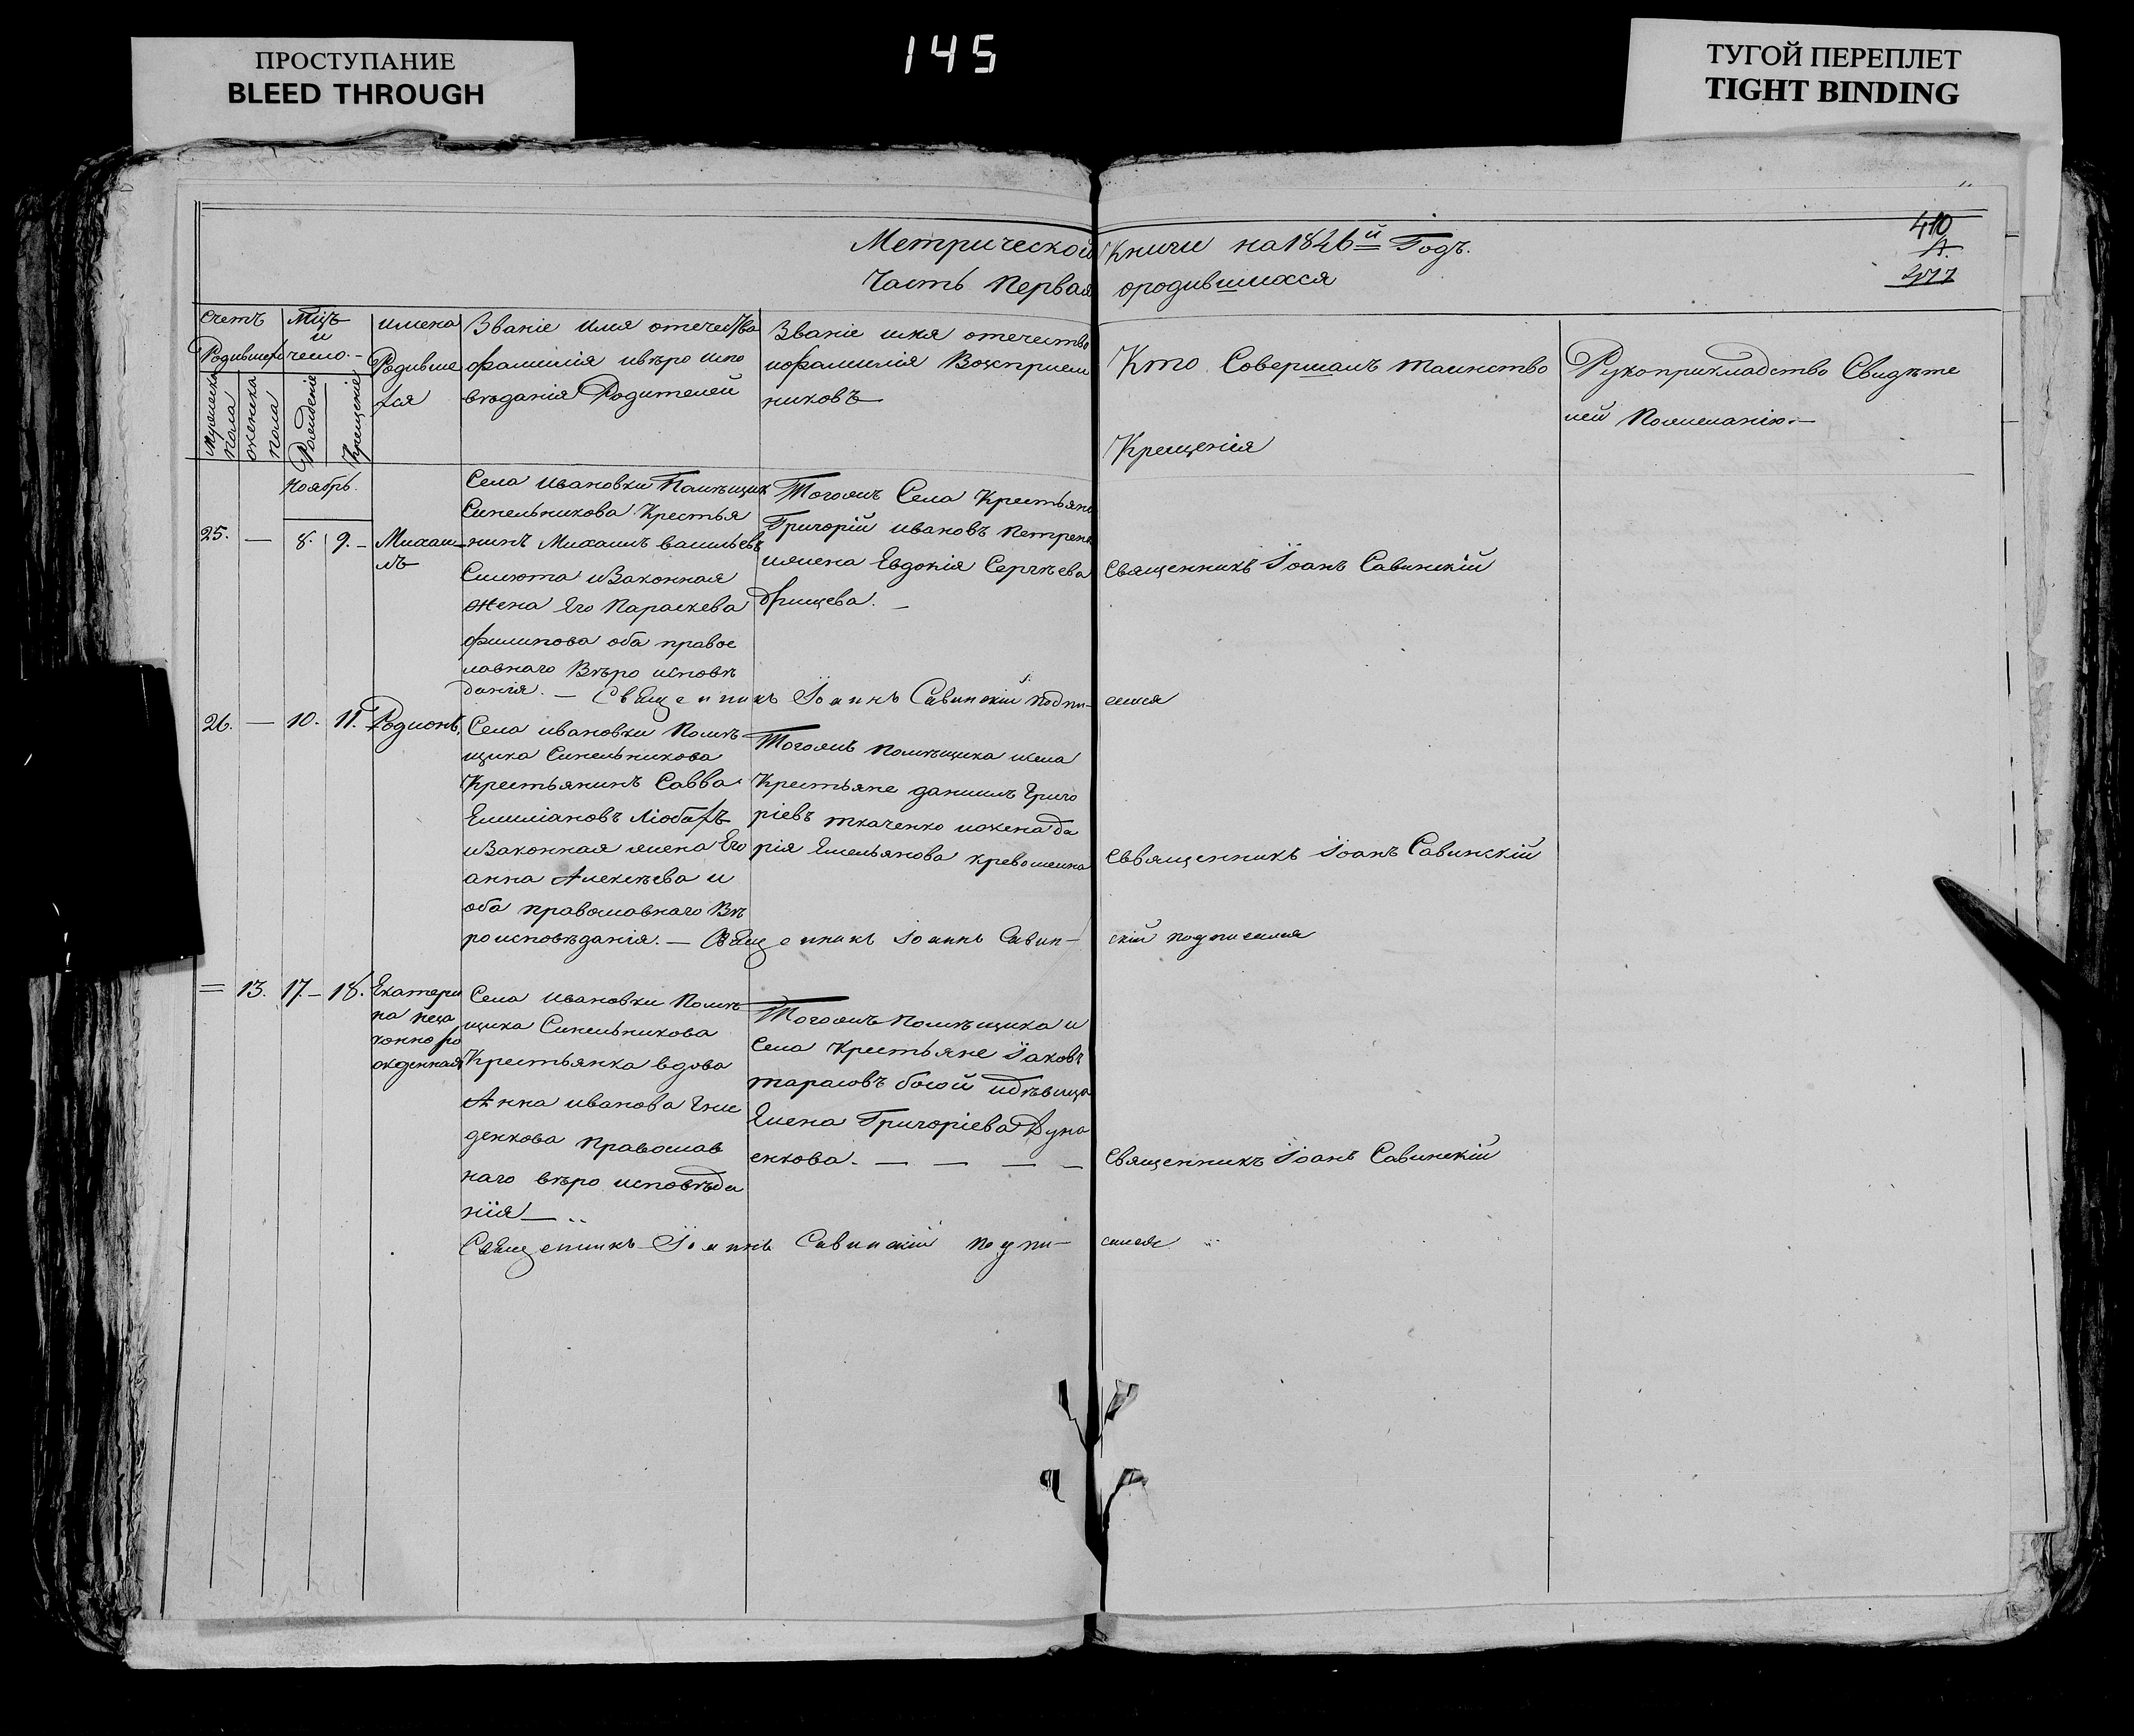 145
ПРОСТУПАНИЕ
BLEED THROUGH
ТУГОЙ ПЕРЕПЛЕТ
TIGHT BINDING
410
Метрической Книги на 1846й Годъ.
Часть Первая ородившихся
Счетъ
Родившихся
мужеска пола
женска пола
Мцъ
и
число.
Рожденіе
Крещеніе
имена
Родивше
хся
Званіе Имя отечества
фамилія ивѣро испо
вѣданія Родителей
Званіе имя отечество
ифамилія Воспріем
никовъ
Кто Совершалъ таинство
Крещенія
Рукоприкладство Свидѣте
лей Пожеланію.—
Ноябрь.
25. — 8. 9. – Михаи
лъ
Села ивановки Помѣщик
Синельникова Крестья
нинъ Михаилъ васильевъ
изаконная
жена Его Параскева
филипова оба правос
лавнаго Вѣро исповѣ
данія. —
Тогожъ Села Крестьяне
Григорій ивановъ
ижена Евдокія Сергѣева
Священникъ Іоанъ Савинскій
Священникъ Іоаннъ Савинскій подпи-
сался
26. — 10. 11. Родионъ,
Села ивановки Помѣ
щика Синельникова
Крестьянинъ Савва
Емиліановъ Любахъ
изаконная жена Его
анна Алексѣева и
оба православнаго Вѣ
роисповѣданія. —
Тогожъ помѣщика исела
Крестьяне даниилъ Григо
ріевъ ткаченко ижена да
рія Емельянова
Свящeнникъ Іоанъ Савинскій
Священникъ Іоаннъ Савин-
скій подписался
= 13. 17. – 18. Екатери
на неза
конноро
жденная
Села ивановки Помѣ
щика Синельникова
Крестьянка вдова
Анна иванова Гни
денкова Православ
наго вѣро исповѣда
нія —
Тогожъ помѣщика и
Села Крестьяне Іаковъ
тарасовъ босой идѣвица
Елена Григоріева Дуна
енкова. — — — —
Священникъ Іоанъ Савинскій
Священникъ Іоаннъ Савинскій подпи-
сался